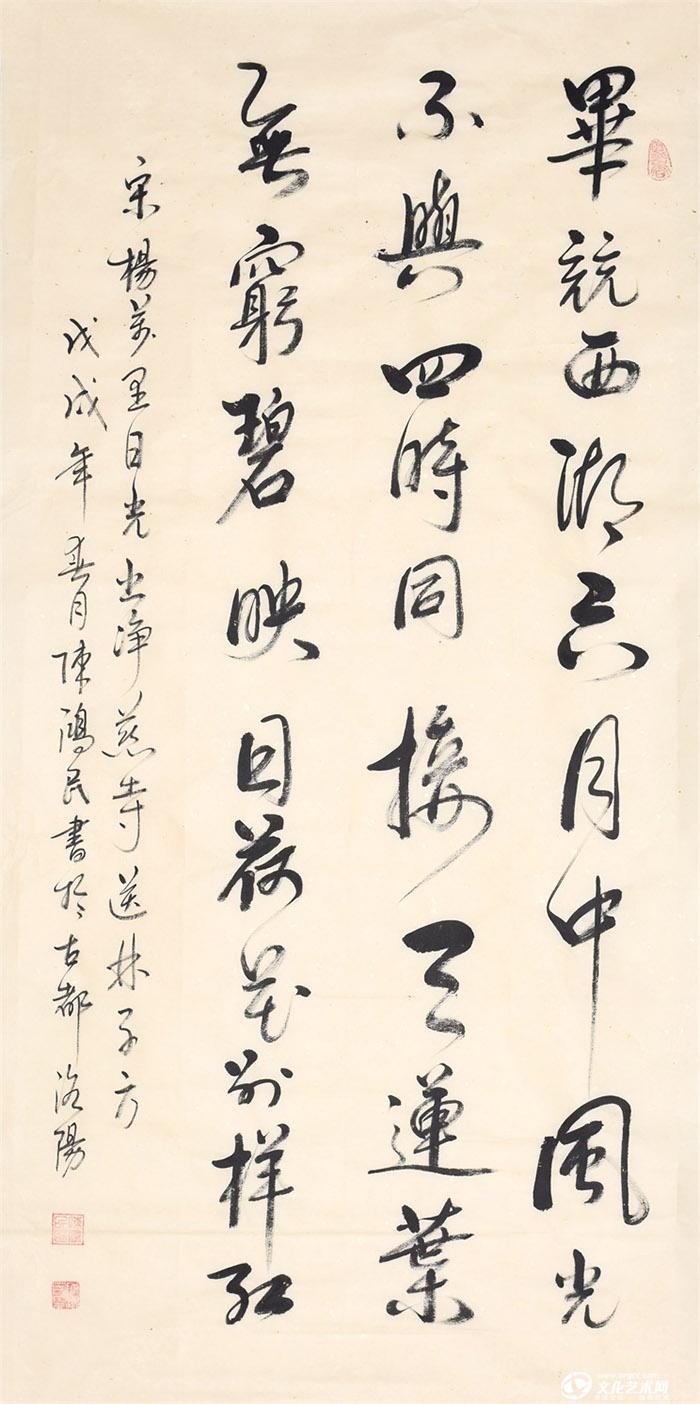 畢竟西湖六月中風光
不與四時同接天蓮葉
無窮碧映日荷花別樣紅
宋楊萬里曰光出淨慈寺送林子方
戊戌年春月陳鴻民書於古都洛陽
文化艺术网